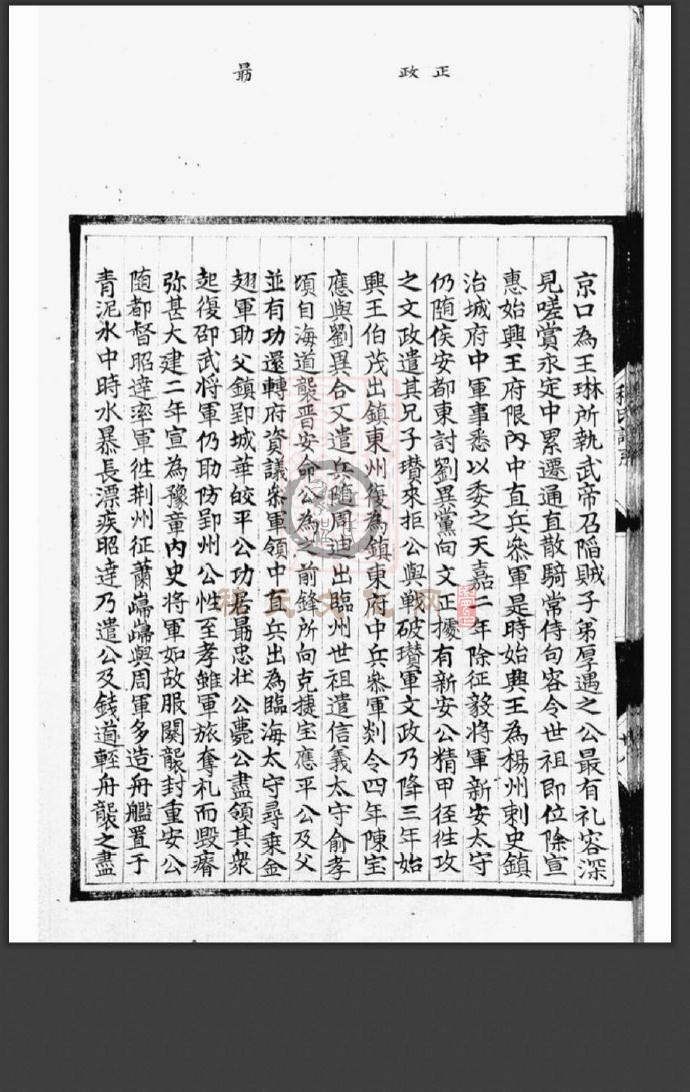 正
政
最
京口為王琳所執武帝召陷賊子弟厚遇之公最有礼容深
見嗟賞永定中累遷通直散騎常侍句容令世祖即位除宣
惠始興王府限內中直兵叅軍是時始興王為楊州刺史鎮
治城府中軍事悉以委之天嘉二年除征毅將軍新安太守
仍随侯安都東討劉異黨向文正㩀有新安公精甲徑徃攻
之文政遣其兄子瓚來拒公與戰破瓚軍文政乃降三年始
興王伯茂出鎮東州復為鎮東府中兵叅軍剡令四年陳宝
應與劉異合又遣兵随周迪出臨州世祖遣信義太守俞孝
頃自海道襲晋安命公為之前鋒所向克捷宝應平公及父
並有功還轉府資議叅軍領中直兵出為臨海太守尋乗金
翅軍助父鎮郢城華皎平公功居最忠壮公薨公盡領其衆
起復卲武将軍仍助防郢州公性至孝雖軍旅奪礼而毀瘠
弥甚大建二年宣為豫章内史将軍如故服闋襲封重安公
随都督昭達率軍徃荆州征蕭巋巋與周軍多造舟艦置于
青泥水中時水暴長漂疾昭達乃遣公及錢道輕舟襲之盡
程氏文化网